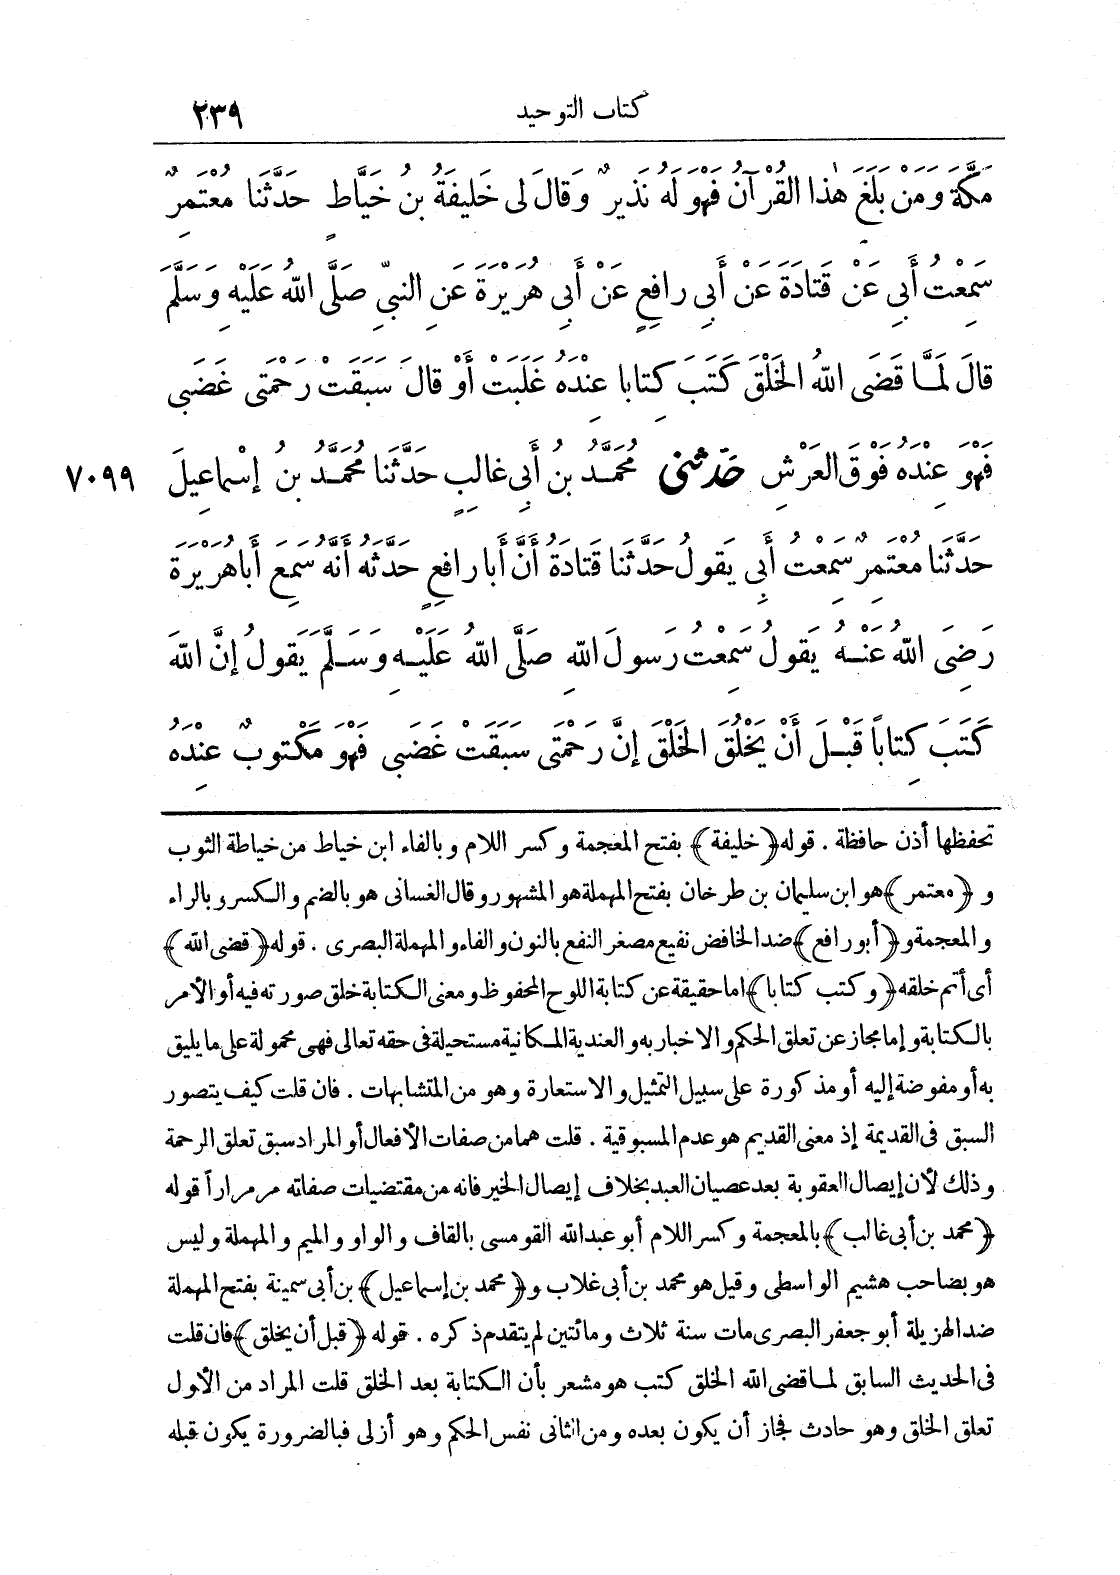 كتاب التوحيد ٢٣٩
مَكَّةَ وَمَنْ بَلَغَ هٰذَا الْقُرْآنُ فَهُوَ لَهُ نَذِيرٌ وَقَالَ لِى خَلِيفَةُ بنُ خَيَّاطٍ حَدَّثَنا مُعْتَمِرٌ
سَمِعْتُ أَبِى عَنْ قَتَادَةَ عَنْ أَبِى رافِعٍ عَنْ أَبِى هُرَيْرَةَ عَنِ النَّبِىِّ صَلَّى اللهُ عَلَيْهِ وَسَلَّمَ
قالَ لَمَّا قَضَى اللهُ الخَلْقَ كَتَبَ كِتابا عِنْدَهُ غَلَبَتْ أَوْ قالَ سَبَقَتْ رَحْمَتِى غَضَبِى
فَهْوَ عِنْدَهُ فَوْقَ العَرْشِ حَدَّثَنِى مُحَمَّدُ بنُ أَبِى غالِبٍ حَدَّثَنا مُحَمَّدُ بنُ إِسْماعِيلَ ٧٠٩٩
حَدَّثَنا مُعْتَمِرٌ سَمِعْتُ أَبِى يَقولُ حَدَّثَنا قَتَادَةُ أَنَّ أَبا رافِعٍ حَدَّثَهُ أَنَّهُ سَمِعَ أَبا هُرَيْرَةَ
رَضِىَ اللهُ عَنْهُ يَقولُ سَمِعْتُ رَسولَ اللهِ صَلَّى اللهُ عَلَيْهِ وَسَلَّمَ يَقولُ إِنَّ اللهَ
كَتَبَ كِتاباً قَبْلَ أَنْ يَخْلُقَ الخَلْقَ إِنَّ رَحْمَتِى سَبَقَتْ غَضَبِى فَهْوَ مَكْتوبٌ عِنْدَهُ
تحفظها أذن حافظة . قوله ﴿خليفة﴾ بفتح المعجمة وكسر اللام وبالفاء ابن خياط من خياطة الثوب
و ﴿معتمر﴾ هو ابن سليمان بن طرخان بفتح المهملة هو المشهور وقال الغسانى هو بالضم والكسر وبالراء
والمعجمة و﴿أبو رافع﴾ ضد الخافض نفيع مصغر النفع بالنون والفاء والمهملة البصرى . قوله ﴿قضى الله﴾
أى أتم خلقه ﴿وكتب كتابا﴾ اما حقيقة عن كتابة اللوح المحفوظ ومعنى الكتابة خلق صورته فيه أو الأمر
بالكتابة وإما مجاز عن تعلق الحكم والاخبار به والعندية المكانية مستحيلة فى حقه تعالى فهى محمولة على ما يليق
به أو مفوضة إليه أو مذكورة على سبيل التمثيل والاستعارة وهو من المتشابهات . فان قلت كيف يتصور
السبق فى القديمة إذ معنى القديم هو عدم المسبوقية . قلت هما من صفات الأفعال أو المراد سبق تعلق الرحمة
وذلك لأن إيصال العقوبة بعد عصيان العبد بخلاف إيصال الخير فانه من مقتضيات صفاته مر مراراً قوله
﴿محمد بن أبى غالب﴾ بالمعجمة وكسر اللام أبو عبد الله القومسى بالقاف والواو والميم والمهملة وليس
هو بصاحب هشيم الواسطى وقيل هو محمد بن أبى غلاب و﴿محمد بن إسماعيل﴾ بن أبى سمينة بفتح المهملة
ضد الهزيلة أبو جعفر البصرى مات سنة ثلاث ومائتين لم يتقدم ذكره . قوله ﴿قبل أن يخلق﴾ فان قلت
فى الحديث السابق لما قضى الله الخلق كتب هو مشعر بأن الكتابة بعد الخلق قلت المراد من الأول
تعلق الخلق وهو حادث فجاز أن يكون بعده ومن الثانى نفس الحكم وهو أزلى فبالضرورة يكون قبله